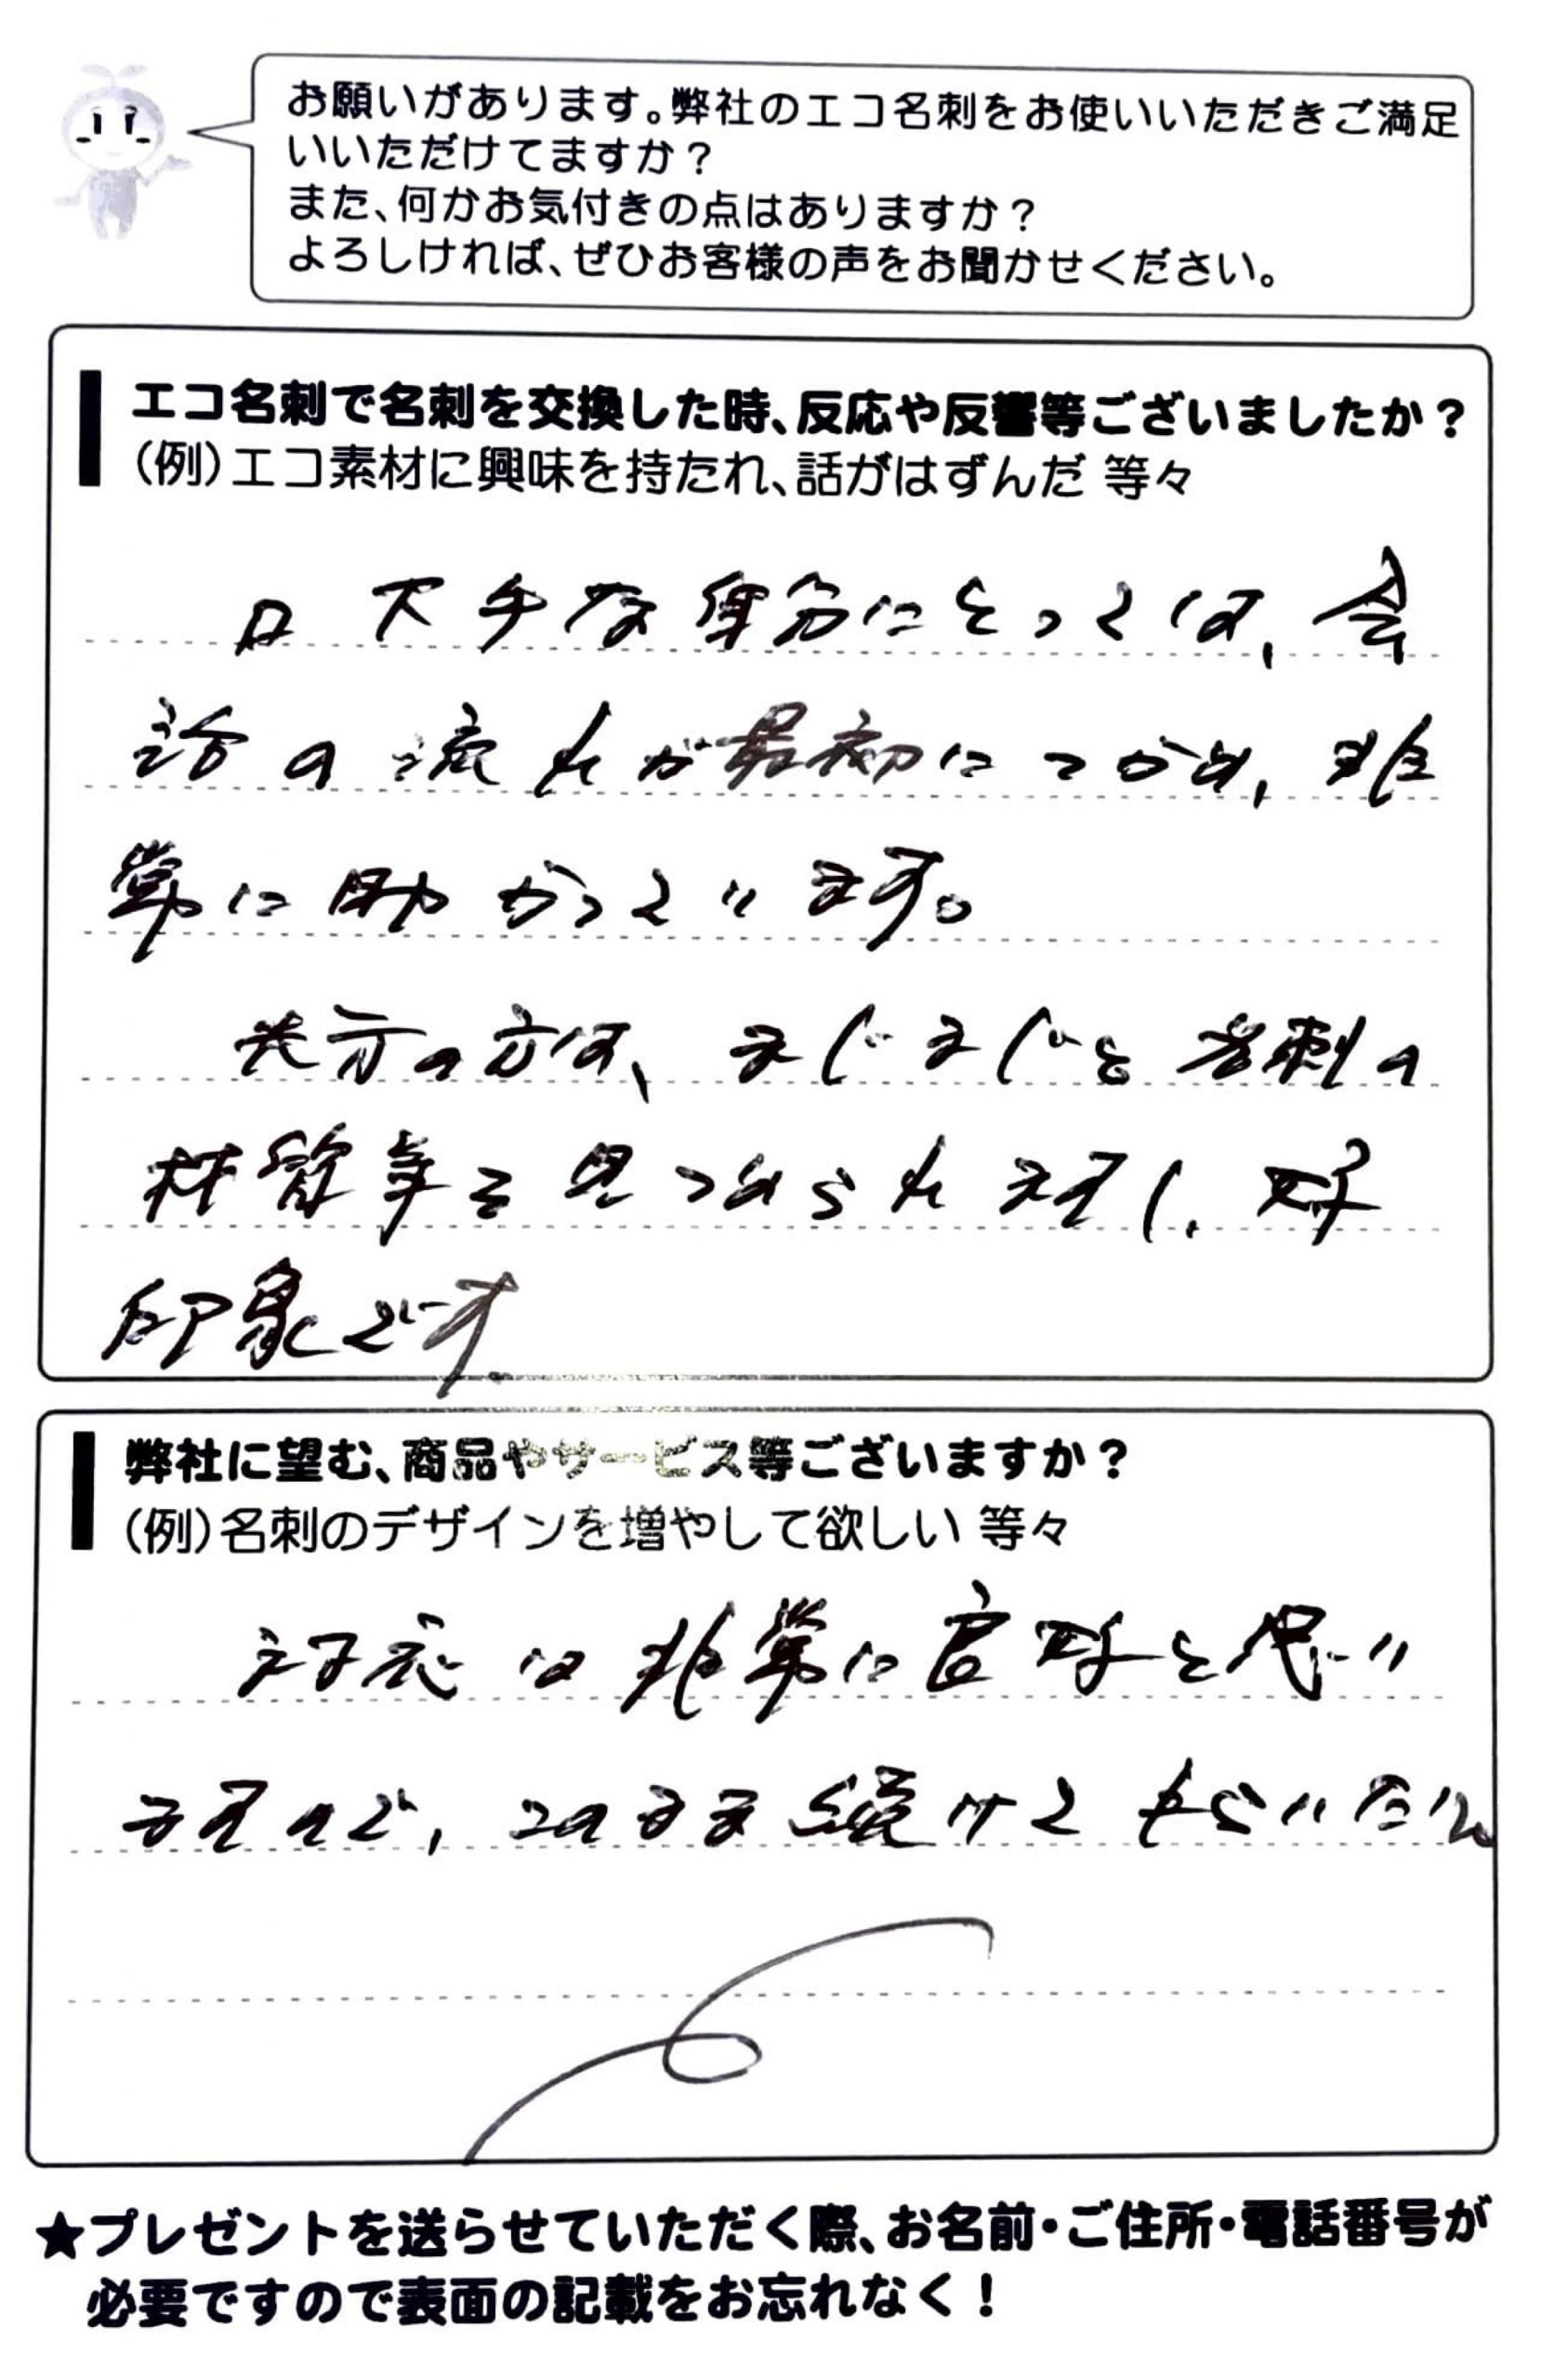 お願いがあります。弊社のエコ名刺をお使いいただきご満足
いいただけてますか？
また、何かお気付きの点はありますか？
よろしければ、ぜひお客様の声をお聞かせください。
エコ名刺で名刺を交換した時、反応や反響等ございましたか？
（例）エコ素材に興味を持たれ、話がはずんだ 等々
口下手な自分にとっては、会
話の流れが最初につかめ、非
常に助かっています。
先方の方は、まじまじと名刺の
材質等を見つめられますし、好
印象です。
弊社に望む、商品やサービス等ございますか？
（例）名刺のデザインを増やして欲しい 等々
対応は非常に良好と思い
ますので、このまま続けてもらいたい
★プレゼントを送らせていただく際、お名前・ご住所・電話番号が
必要ですので表面の記載をお忘れなく！